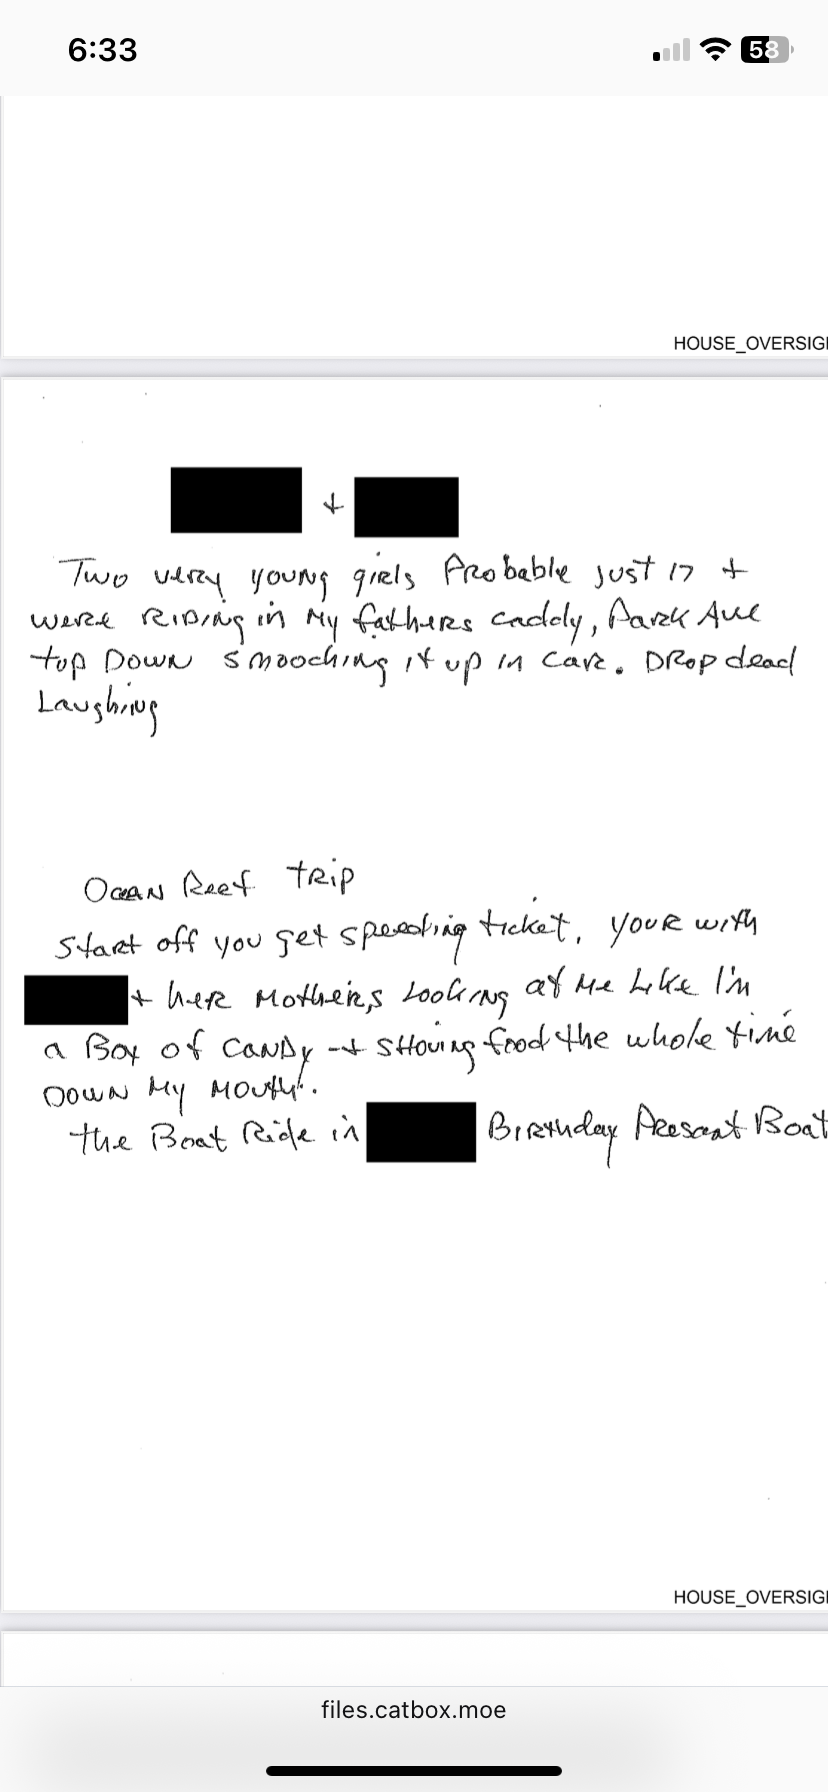 6:33
58
HOUSE_OVERSIGH
+
Two very young girls Probable just 17 +
were Riding in My fathers caddy, Park Ave
top Down smooching it up in car. Drop dead
Laughing
Ocean Reef Trip
Start off you get speeding ticket, your with
+ her Mothers, Looking at Me Like I'm
a Box of Candy + SHoving food the whole time
DOWN My Mouth.
the Boat Ride in Birthday Present Boat
HOUSE_OVERSIGH
files.catbox.moe